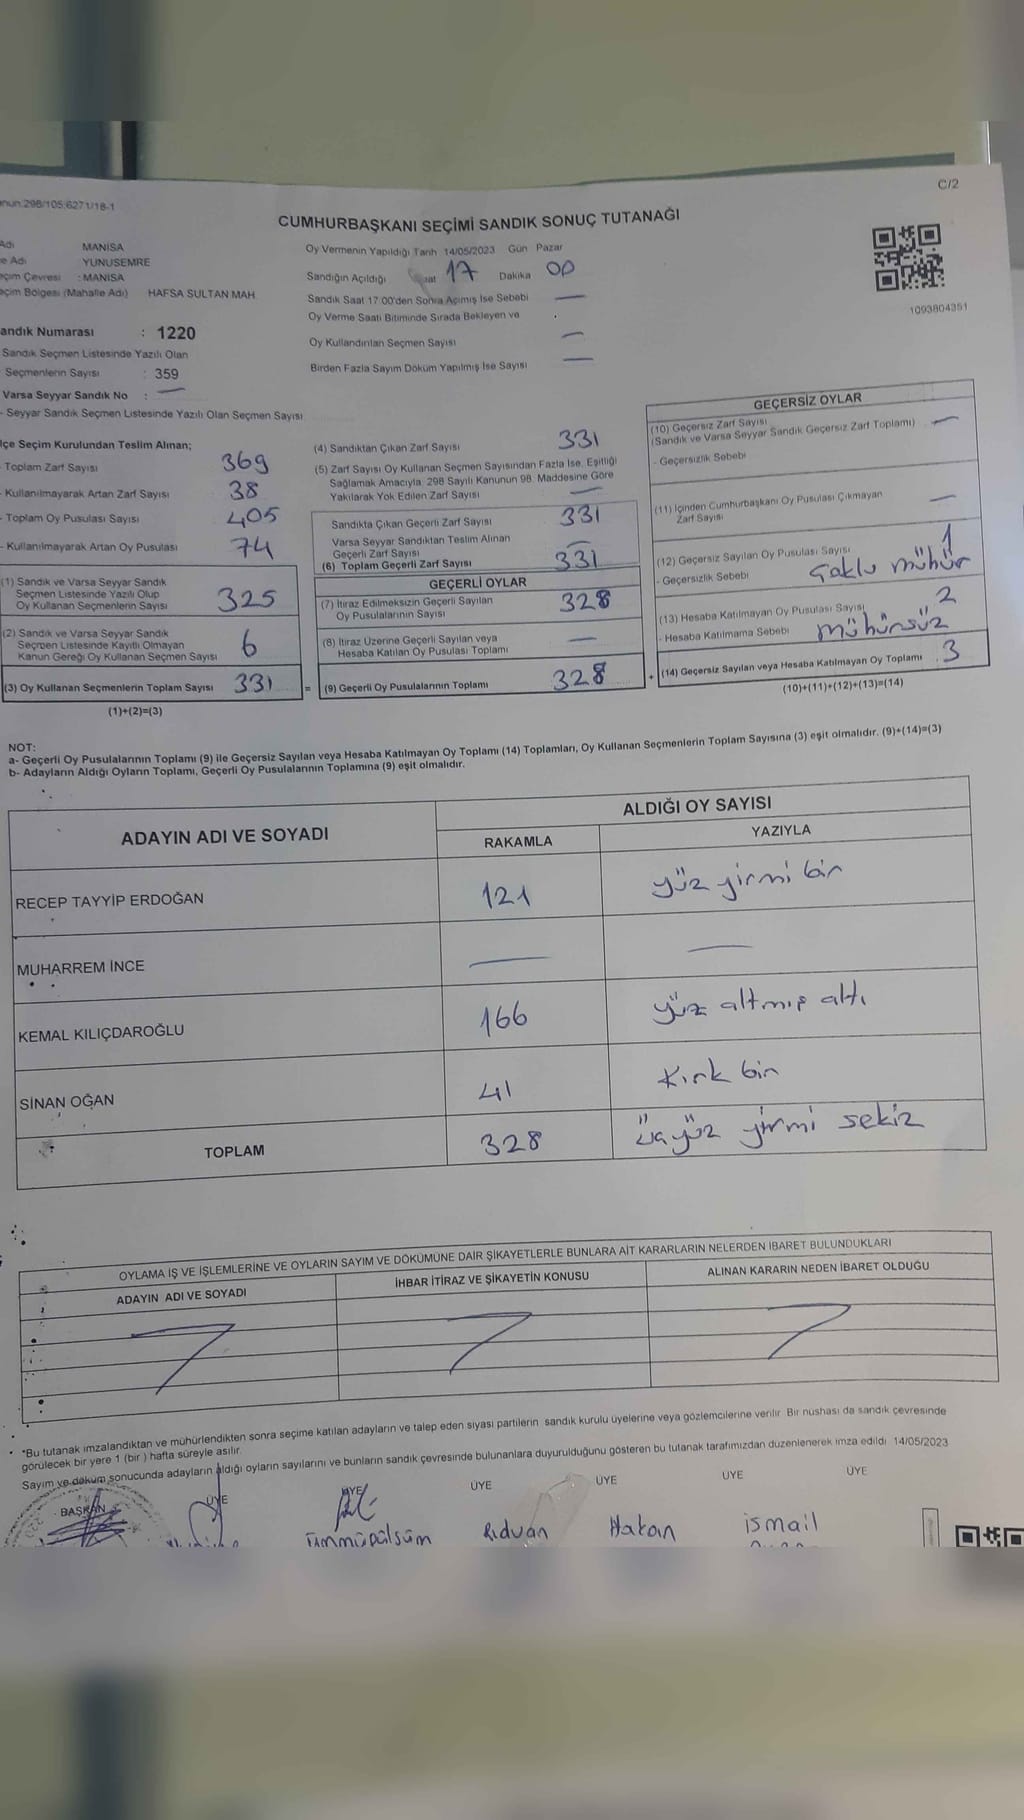 C/2
CUMHURBAŞKANI SEÇİMİ SANDIK SONUÇ TUTANAĞI
Adı MANİSA
e Adı YUNUSEMRE
eçim Çevresi : MANİSA
eçim Bölgesi (Mahalle Adı) HAFSA SULTAN MAH
andık Numarası : 1220
Sandık Seçmen Listesinde Yazılı Olan
Seçmenlerin Sayısı : 359
Varsa Seyyar Sandık No : —
- Seyyar Sandık Seçmen Listesinde Yazılı Olan Seçmen Sayısı
Oy Vermenin Yapıldığı Tarih 14/05/2023 Gün Pazar
Sandığın Açıldığı 17 Dakika 00
Sandık Saat 17:00'den Sonra Açımış İse Sebebi —
Oy Verme Saati Bitiminde Sırada Bekleyen ve
Oy Kullandırılan Seçmen Sayısı —
Birden Fazla Sayım Döküm Yapılmış İse Sayısı —
1093804351
lçe Seçim Kurulundan Teslim Alınan;
- Toplam Zarf Sayısı 369
- Kullanılmayarak Artan Zarf Sayısı 38
- Toplam Oy Pusulası Sayısı 405
- Kullanılmayarak Artan Oy Pusulası 74
(1) Sandık ve Varsa Seyyar Sandık
Seçmen Listesinde Yazılı Olup
Oy Kullanan Seçmenlerin Sayısı 325
(2) Sandık ve Varsa Seyyar Sandık
Seçmen Listesinde Kayıtlı Olmayan
Kanun Gereği Oy Kullanan Seçmen Sayısı 6
(3) Oy Kullanan Seçmenlerin Toplam Sayısı 331
(1)+(2)=(3)
(4) Sandıktan Çıkan Zarf Sayısı 331
(5) Zarf Sayısı Oy Kullanan Seçmen Sayısından Fazla İse, Eşitliği
Sağlamak Amacıyla, 298 Sayılı Kanunun 98. Maddesine Göre
Yakılarak Yok Edilen Zarf Sayısı —
Sandıkta Çıkan Geçerli Zarf Sayısı 331
Varsa Seyyar Sandıktan Teslim Alınan
Geçerli Zarf Sayısı —
(6) Toplam Geçerli Zarf Sayısı 331
GEÇERLİ OYLAR
(7) İtiraz Edilmeksizin Geçerli Sayılan
Oy Pusulalarının Sayısı 328
(8) İtiraz Üzerine Geçerli Sayılan veya
Hesaba Katılan Oy Pusulası Toplamı —
= (9) Geçerli Oy Pusulalarının Toplamı 328
GEÇERSİZ OYLAR
(10) Geçersiz Zarf Sayısı
(Sandık ve Varsa Seyyar Sandık Geçersiz Zarf Toplamı) —
- Geçersizlik Sebebi
(11) İçinden Cumhurbaşkanı Oy Pusulası Çıkmayan
Zarf Sayısı —
(12) Geçersiz Sayılan Oy Pusulası Sayısı 1
- Geçersizlik Sebebi Çoklu mühür
(13) Hesaba Katılmayan Oy Pusulası Sayısı 2
- Hesaba Katılmama Sebebi mühürsüz
+ (14) Geçersiz Sayılan veya Hesaba Katılmayan Oy Toplamı 3
(10)+(11)+(12)+(13)=(14)
NOT:
a- Geçerli Oy Pusulalarının Toplamı (9) ile Geçersiz Sayılan veya Hesaba Katılmayan Oy Toplamı (14) Toplamları, Oy Kullanan Seçmenlerin Toplam Sayısına (3) eşit olmalıdır. (9)+(14)=(3)
b- Adayların Aldığı Oyların Toplamı, Geçerli Oy Pusulalarının Toplamına (9) eşit olmalıdır.
ADAYIN ADI VE SOYADI ALDIĞI OY SAYISI
RAKAMLA YAZIYLA
RECEP TAYYİP ERDOĞAN 121 yüz yirmi bir
MUHARREM İNCE — —
KEMAL KILIÇDAROĞLU 166 yüz altmış altı
SİNAN OĞAN 41 Kırk bir
TOPLAM 328 üçyüz yirmi sekiz
OYLAMA İŞ VE İŞLEMLERİNE VE OYLARIN SAYIM VE DÖKÜMÜNE DAİR ŞİKAYETLERLE BUNLARA AİT KARARLARIN NELERDEN İBARET BULUNDUKLARI
ADAYIN ADI VE SOYADI İHBAR İTİRAZ VE ŞİKAYETİN KONUSU ALINAN KARARIN NEDEN İBARET OLDUĞU
*Bu tutanak imzalandıktan ve mühürlendikten sonra seçime katılan adayların ve talep eden siyasi partilerin sandık kurulu üyelerine veya gözlemcilerine verilir. Bir nüshası da sandık çevresinde
görülecek bir yere 1 (bir) hafta süreyle asılır.
Sayım ve döküm sonucunda adayların aldığı oyların sayılarını ve bunların sandık çevresinde bulunanlara duyurulduğunu gösteren bu tutanak tarafımızdan düzenlenerek imza edildi. 14/05/2023
BAŞKAN ÜYE ÜYE ÜYE ÜYE ÜYE ÜYE
Ümmügülsüm Rıdvan Hakan ismail